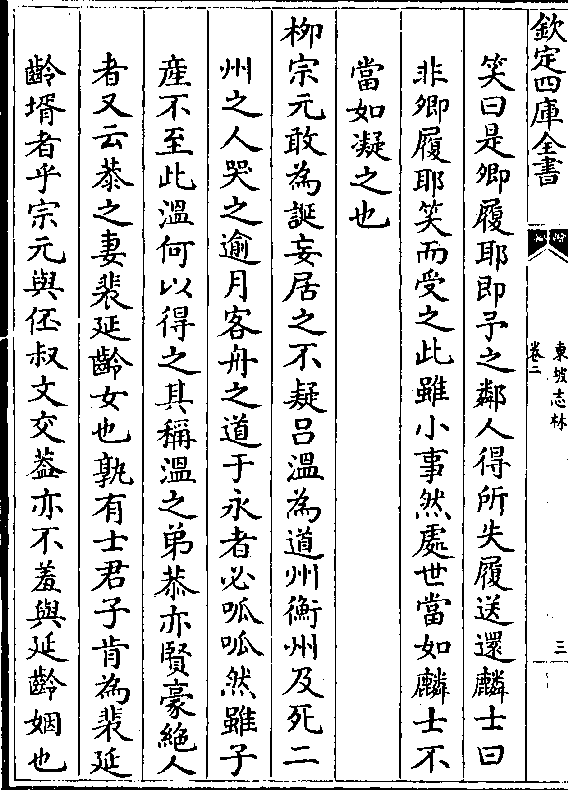 欽定四庫全書
東坡志林
卷二
三
笑曰是卿履耶即予之鄰人得所失履送還麟士曰
非卿履耶笑而受之此雖小事然處世當如麟士不
當如凝之也
柳宗元敢為誕妄居之不疑吕溫為道州衡州及死二
州之人哭之逾月客舟之道于永者必呱呱然雖子
産不至此溫何以得之其稱溫之弟恭亦賢豪絶人
者又云恭之妻裴延齡女也孰有士君子肯為裴延
齡壻者乎宗元與伾叔文交葢亦不羞與延齡婣也